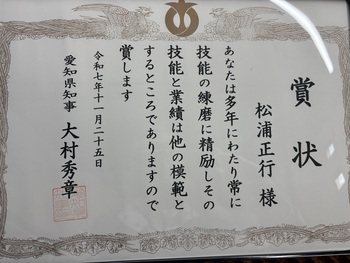 賞状
松浦正行 様
あなたは多年にわたり常に
技能の練磨に精励しその
技能と業績は他の模範と
するところでありますので
賞します
令和七年十一月二十五日
愛知県知事 大村秀章